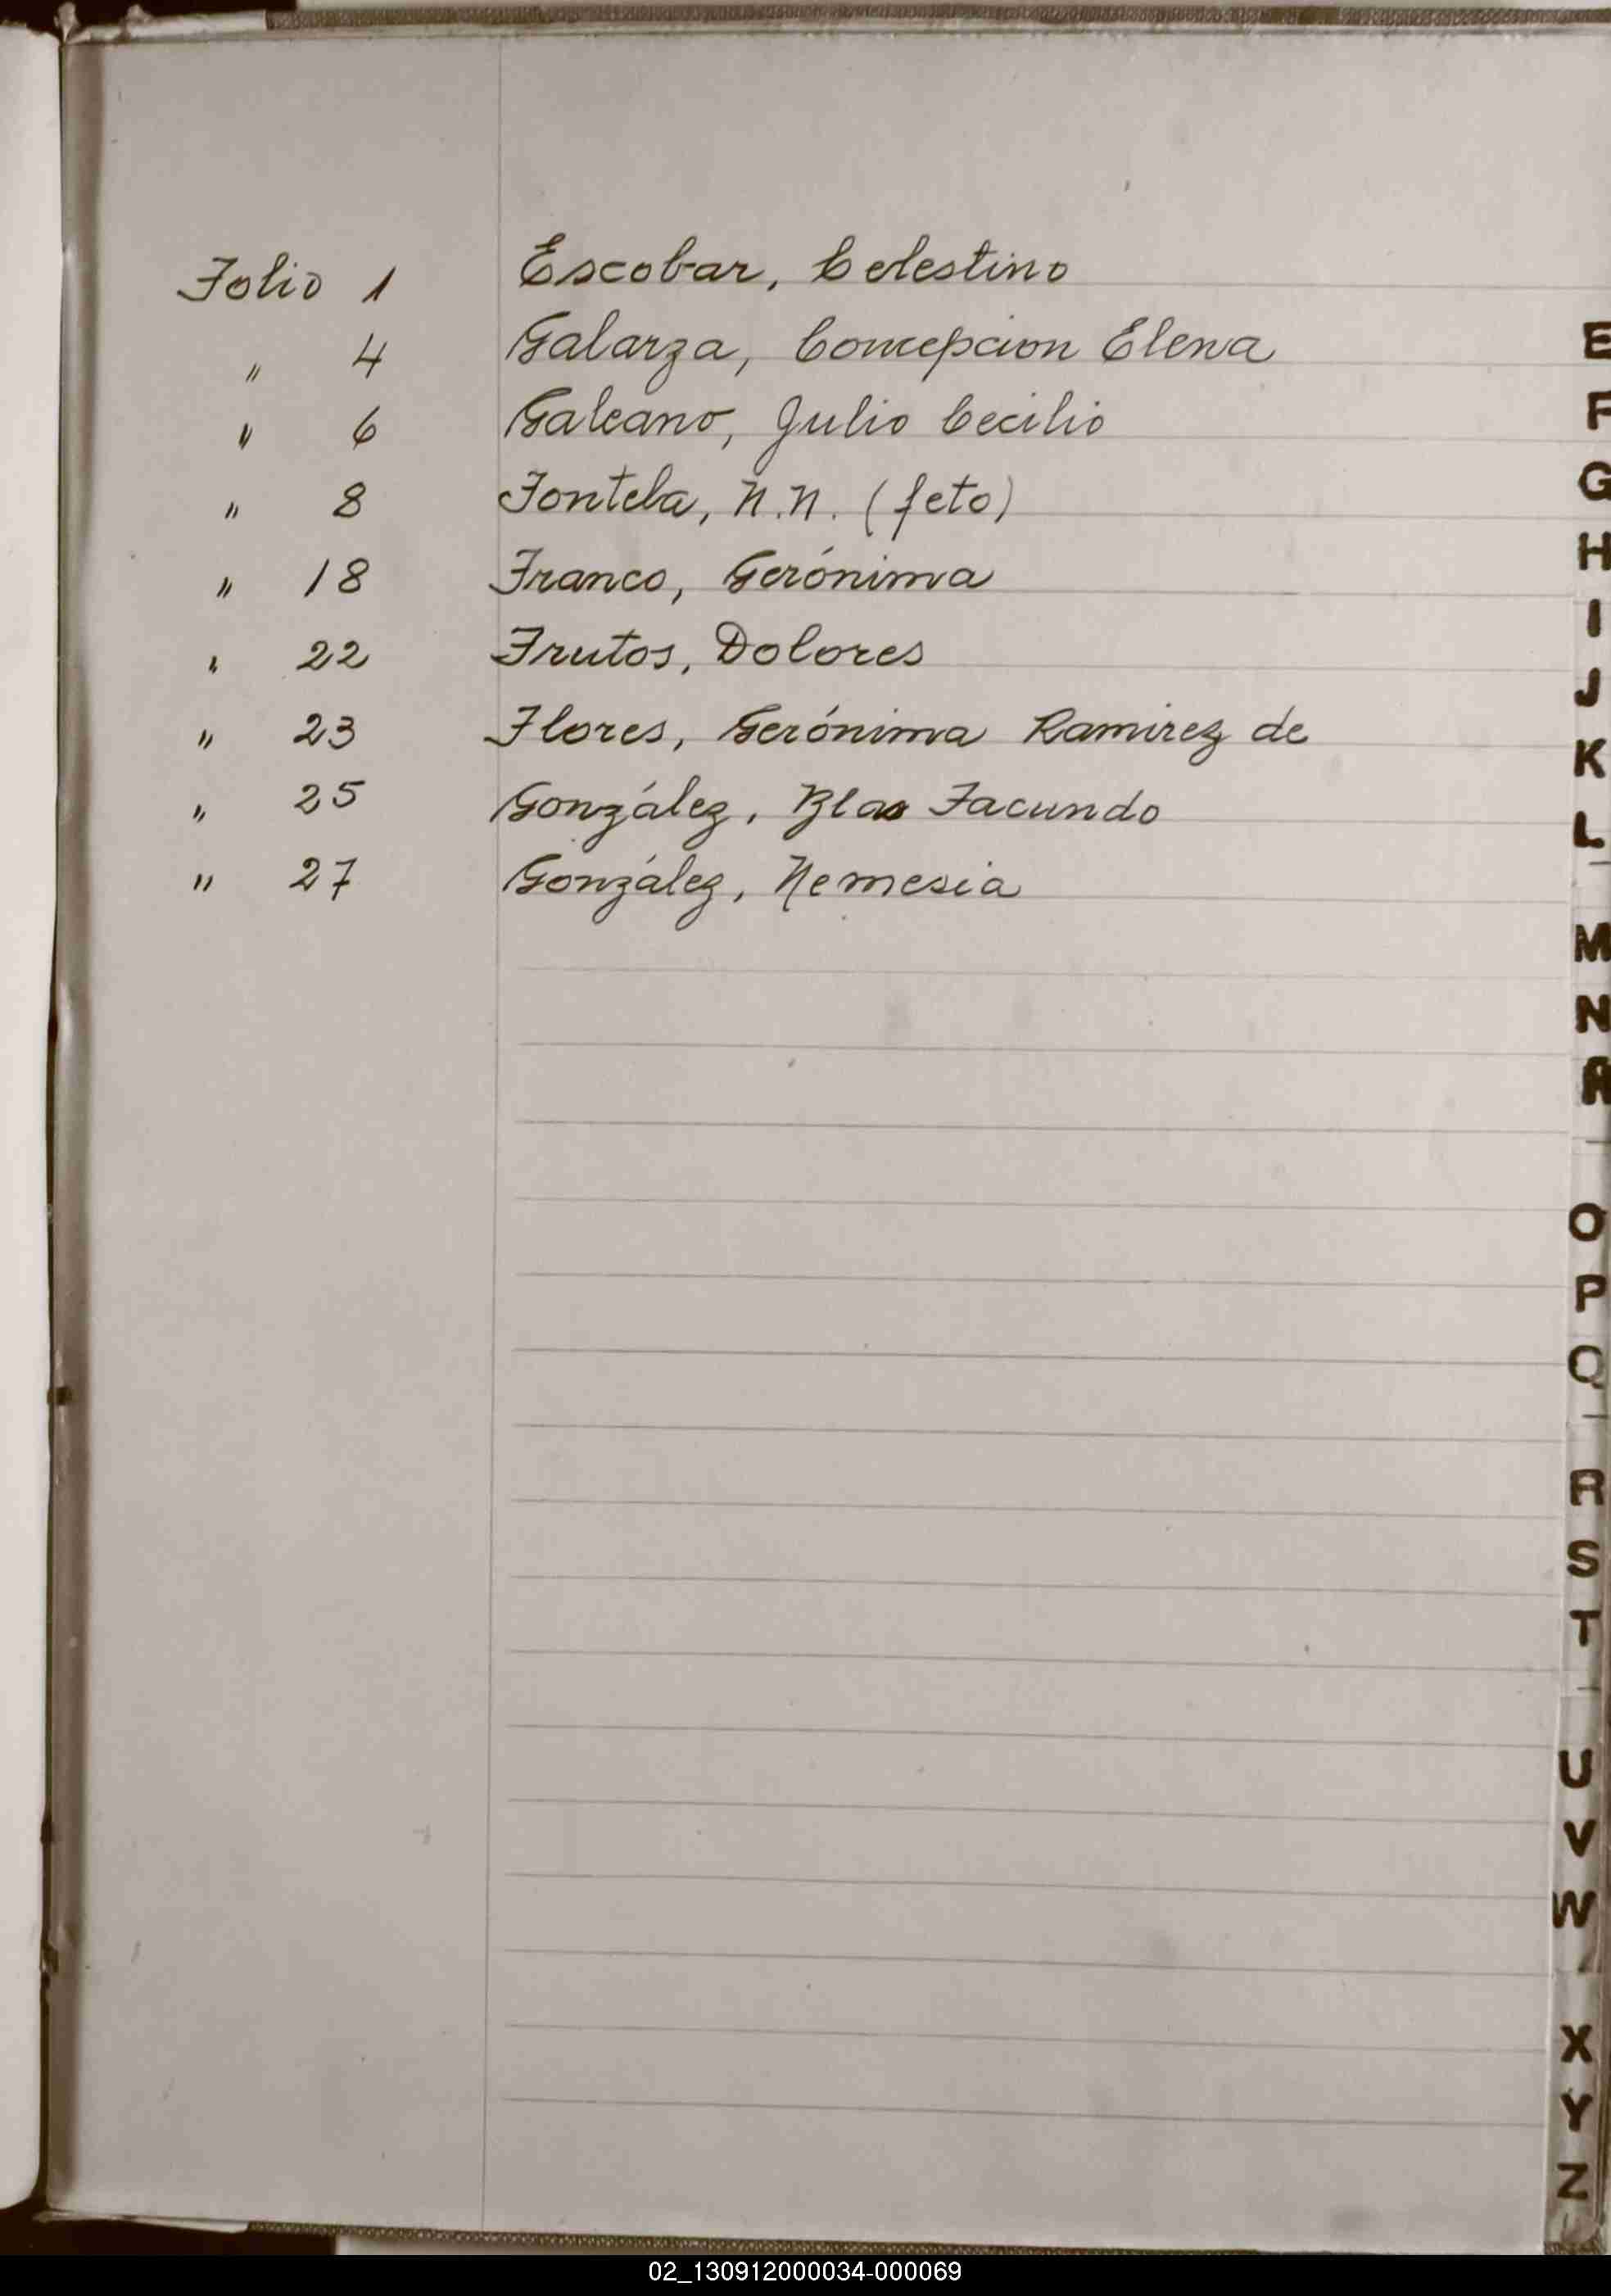 Folio 1 Escobar, Celestino
" 4 Galarza, Concepcion Elena
" 6 Galeano, Julio Cecilio
" 8 Fontela, N.N. (feto)
" 18 Franco, Gerónima
" 22 Frutos, Dolores
" 23 Flores, Gerónima Ramirez de
" 25 González, Blas Facundo
" 27 González, Nemesia
E
F
G
H
I
J
K
L
M
N
Ñ
O
P
Q
R
S
T
U
V
W
X
Y
Z
02_130912000034-000069